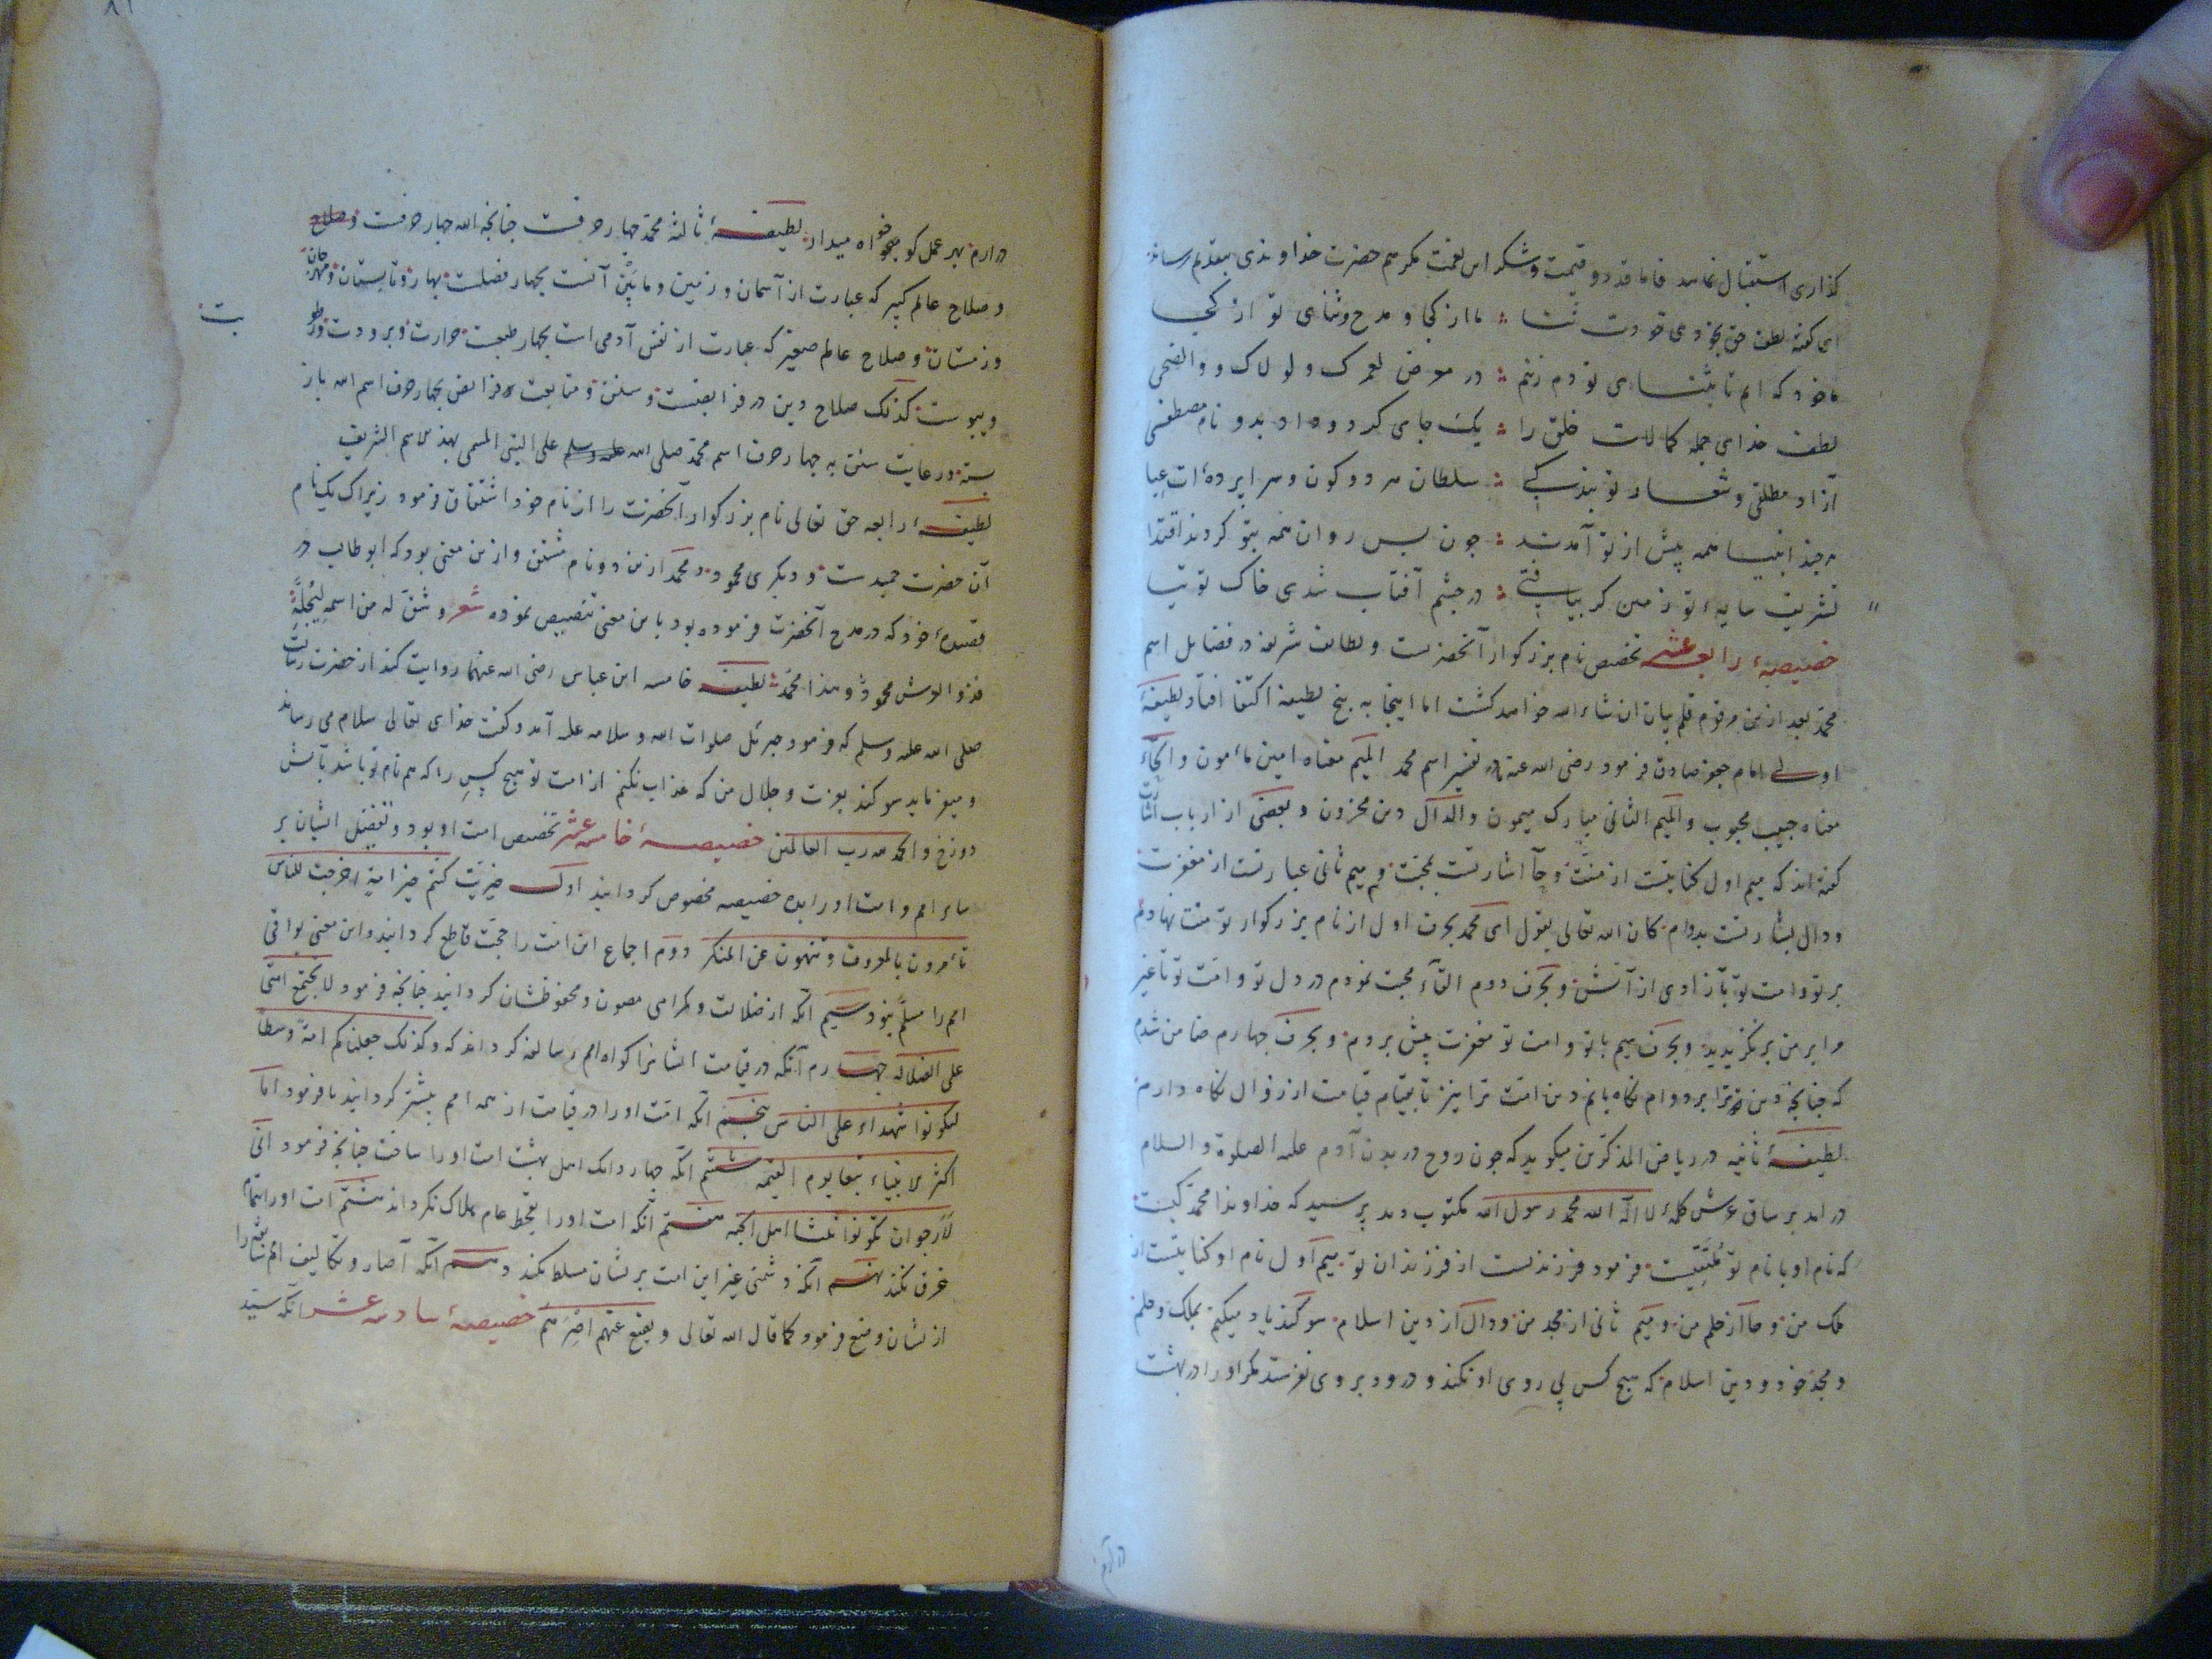 گذاری استقبال نماید فاما قدر و قیمت و شکر این نعمت مکر هم حضرت خداوندی بتقدیم رساند
ای گفته لطف حق بخودی خودت ثنا ؛ ما از کجا و مدح و ثنای تو از کجا
ما خود که ایم تا بثنای تو دم زنیم ؛ در معرض لعمرک و لولاک و والضحی
لطف خدای جمله کمالات خلق را ؛ یک جای کرد و داد بدو نام مصطفی
آزاد مطلقی و شعار تو بندگی ؛ سلطان هر دو کون و سراپرده‌ات عبا
هرچند انبیا همه پیش از تو آمدند ؛ چون پس روان همه بتو کردند اقتدا
تشریف سایهٔ تو زمین کر بیافتی ؛ در چشم آفتاب شدی خاک توتیا
خصیصهٔ رابع عشر تخصیص نام بزرکوار آنحضرتست و لطایف شریفه در فضایل اسم
محمد بعد ازین مرقوم قلم بیان ان شاء الله خواهد کشت اما اینجا به پنج لطیفه اکتفا افتاد لطیفهٔ
اولی امام جعفر صادق فرمود رضی الله عنه در تفسیر اسم محمد المیم معناه امین مأمون و الحاء
معناه حبیب محبوب والمیم الثانی مبارک میمون والدال دین مخزون و بعضی از ارباب اشارت
کفته‌اند که میم اول کنایتست از منت و حا اشارتست بمحبت و میم ثانی عبارتست از مغفرت
و دال بشارتست بدوام کان الله تعالی یقول ای محمد بحرف اول از نام بزرکوار تو منت نهادم
بر تو و امت تو بآزادی از آتش و بحرف دوم القاء محبت نمودم در دل تو و امت تو تا غیر
مرا بر من برنکزیدید و بحرف میم با تو و امت تو مغفرت پیش بردم و بحرف چهارم ضامن شدم
که چنانچه دین ترا بر دوام نکاه دارم دین امت ترا نیز تا بقیام قیامت از زوال نکاه دارم
لطیفهٔ ثانیه در ریاض المذکرین میکوید که چون روح در بدن آدم علیه الصلوة و السلام
درامد بر ساق عرش کلمهٔ لا اله الا الله محمد رسول الله مکتوب دید پرسید که خداوندا محمد کیست
که نام او با نام تو ... فرمود فرزندیست از فرزندان تو میم اول نام او کنایتست از
ملک من و حا از حلم من و میم ثانی از مجد من و دال از دین اسلام سوکند یاد میکنم بملک و حلم
و مجد خود و دین اسلام که هیچ کس پی روی او نکند و درود بر وی نفرستد مکر او را در بهشت
درآرم
درارم بهر عمل کو خواه میدار لطیفهٔ ثالثه محمد چهار حرفست چنانچه الله چهار حرفست
و صلاح عالم کبیر که عبارت از آسمان و زمین و مابین آنست بچهار فصلست بهار و تابستان و مهرجان
و زمستان و صلاح عالم صغیر که عبارت از نفس آدمی است بچهار طبیعت حرارت و برودت و رطوبت
و یبوست کذلک صلاح دین در فرایضست و سنن و متابعت فرایض بچهار حرف اسم الله باز
بسته و رعایت سنن به چهار حرف اسم محمد صلی الله علی النبی المسمی بهذ الاسم الشریف
لطیفهٔ رابعه حق تعالی نام بزرکوار آنحضرت را از نام خود اشتقاق فرمود زیراک یک نام
آن حضرت حمیدست و دیکری محمود و محمد ازین دو نام مشتق و ازین معنی بود که ابوطالب در
قصیدهٔ خود که در مدح آنحضرت فرموده بود باین معنی تنصیص نموده شعر و شق له من اسمه لیجله
فذو العرش محمود و هذا محمد لطیفه خامسه ابن عباس رضی الله عنهما روایت کند از حضرت رسالت
صلی الله علیه وسلم که فرمود جبرئیل صلوات الله و سلامه علیه آمد و کفت خدای تعالی سلام می رساند
و میفرماید سوکند بعزت و جلال من که عذاب نکنم از امت تو هیچ کس را که هم نام تو باشد بآتش
دوزخ والحمد لله رب العالمین خصیصهٔ خامس عشر تخصیص امت او بود و تفضیل ایشان بر
سایر امم و امت او را بده خصیصه مخصوص کردانید اول خیریت کنتم خیر امة اخرجت للناس
تأمرون بالمعروف و تنهون عن المنکر دوم اجماع این امت را حجت قاطع کردانید و این معنی بواقی
امم را مسلم نبود سیم آنکه از ضلالت و کمراهی مصون و محفوظشان کردانید چنانچه فرمود لا یجتمع امتی
علی الضلالة چهارم آنکه در قیامت ایشانرا کواه امم سالفه کرداند که و کذلک جعلناکم امة وسطا
لتکونوا شهداء علی الناس پنجم آنکه امت او را در قیامت از همه امم بیشتر کردانید ما فرمود انا
اکثر الانبیاء تبعا یوم القیمه ششم آنکه چهار دانک اهل بهشت امت او را ساخت چنانچه فرمود انی
لأرجو ان تکونوا ثلثا اهل الجنه هفتم آنکه امت او را بقحط عام هلاک نکرداند هشتم امت او را بتمام
غرق نکند نهم آنکه دشمنی غیر این امت بریشان مسلط نکند دهم آنکه آصار و تکالیف امم سابقه را
ازیشان وضع فرمود کما قال الله تعالی و یضع عنهم اصرهم خصیصهٔ سادس عشر آنکه سید